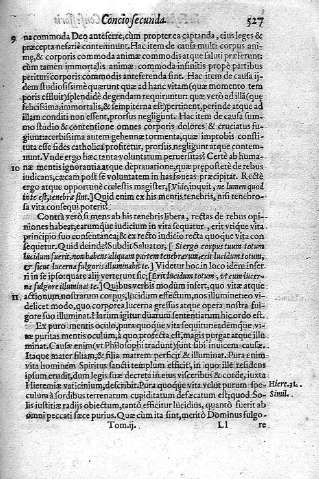 Concio secunda. 527
9 na commoda Deo anteferre, cùm propterea captanda, eius leges &
præcepta nefariè contemnunt. Hac item de causa multi corpus ani-
mæ, & corporis commoda animæ commodis atque saluti præferunt
cùm tamen immortalis animæ commoda infinitis propè partibus
peritura corporis commodis anteferenda sint. Hac item de causa ij-
dem studiosissimè quærunt quæ ad hanc vitam (quæ momento tem
poris effluit) splendidè degendam requiruntur: quæ verò ad illā (quæ
felicissima, immortalis, & sempiterna est) pertinent, perinde atque ad
illam conditi non essent, prorsus negligunt. Hac item de causa sum-
mo studio & contensione omnes corporis dolores & cruciatus fu-
giunt: acerbissima autem gehennæ tormenta, quæ improbis consti-
tuta esse fides catholica profitetur, prorsus negligunt atque contem-
nunt. Vnde ergo hæc tenta voluntatum peruersitas? Certè ab huma-
10 næ mentis ignorantia atque deprauatione, quæ præposterè de rebus
iudicans; ex eam post se voluntatem in has foueas præcipitat. Rectè
ergo atque opportunè cœlestis magister, [Vide, inquit, ne lumen quod
in te est, tenebræ sint.] Quid enim ex his mentis tenebris, nisi tenebro-
sa vita consequi poterit?
Contrà verò si mens ab his tenebris libera, rectas de rebus opi-
niones habeat, earumque iudicium in vita sequatur, erit vtique vita
principio suo consentanea; & ex recto iudicio recta quoque vita con
sequetur. Quid deinde? Subdit Saluator, [Si ergo corpus tuum totum
lucidum fuerit, non habens aliquam partem tenebrarum, erit lucidum totum,
& sicut lucerna fulgoris illuminabit te.] Videtur hoc in loco idem infer-
ri in se ipsum: ait verterunt sic: [Erit lucidum totum, et cum lucer-
na fulgoris illuminat te.] Quibus verbis modum infert, quo vitæ atque
11 actionum nostrarum corpus, lucidum effectum, nos illuminet: eo vi-
delicet modo, quo corporea lucerna gressus atque opera nostra ful-
gore suo illuminat. Harum igitur duarum sententiarum hic ordo est.
Ex puro mentis oculo, pura quoque vita sequitur: eademque vi-
tæ puritas mentis oculum, à quo profecta est, magis pergat atque illu
minat. Causæ enim (vt Philosophi tradunt) sunt sibi inuicem causæ.
Itaque mater filiam, & filia matrem perficit & illuminat. Pura enim
vita hominem Spiritus sancti templum efficit, in quo ille residens
ipsum erudit, dum legis suæ decreta in eius visceribus & corde, iuxta
Hieremiæ vaticinium, describit. Pura quoque vita velut purum spe-
cula à sordibus terrenarum cupiditatum defæcatum est: quod So-
lis iustitiæ radijs obiectum, tantò efficitur lucidius, quantò fuerit ab
omni peccati fæce purius. Quæ cùm ita sint, meritò Dominus fulgo-
Hiere. 31.
Simil.
Tom. ij. Ll re